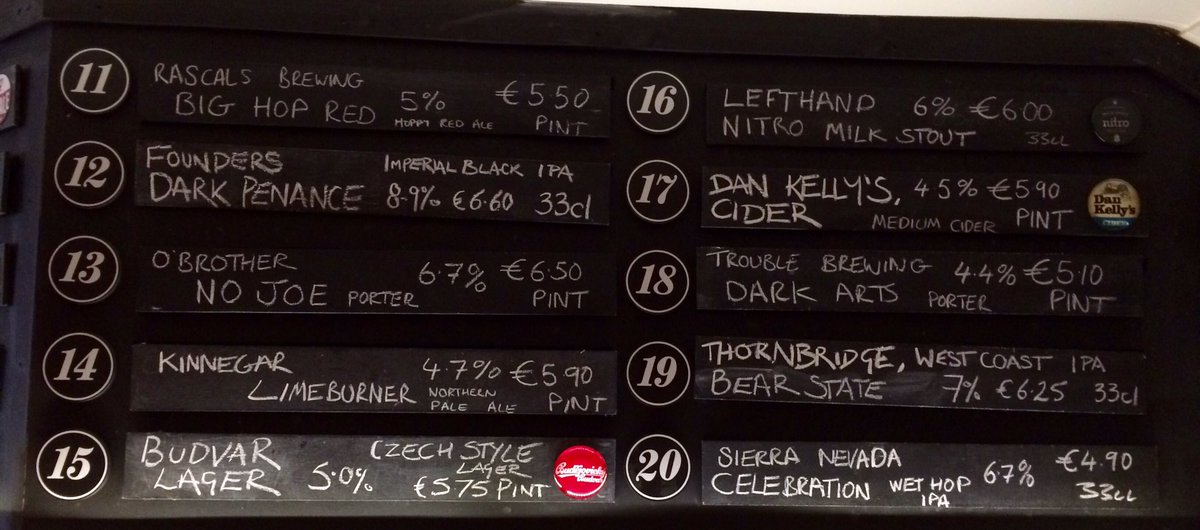 11
RASCALS BREWING
BIG HOP RED 5% €5.50
HOPPY RED ALE PINT
12
FOUNDERS IMPERIAL BLACK IPA
DARK PENANCE 8.9% €6.60 33cl
13
O'BROTHER 6.7% €6.50
NO JOE PORTER PINT
14
KINNEGAR 4.7% €5.90
LIMEBURNER NORTHERN
PALE ALE PINT
15
BUDVAR CZECH STYLE
LAGER 5.0% LAGER
€575 PINT
16
LEFTHAND 6% €6.00
NITRO MILK STOUT 33cl
nitro
17
DAN KELLY'S, 45% €5.90
CIDER MEDIUM CIDER PINT
Dan
Kelly's
18
TROUBLE BREWING 4.4% €5.10
DARK ARTS PORTER PINT
19
THORNBRIDGE, WEST COAST IPA
BEAR STATE 7% €6.25 33cl
20
SIERRA NEVADA 6.7% €4.90
CELEBRATION WET HOP 33cl
IPA